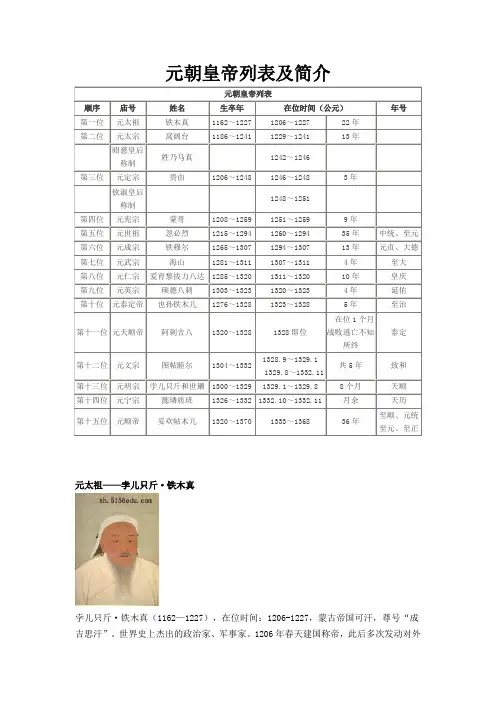 元朝皇帝列表及简介
元朝皇帝列表
顺序 庙号 姓名 生卒年 在位时间（公元） 年号
第一位 元太祖 铁木真 1162～1227 1206～1227 22年
第二位 元太宗 窝阔台 1186～1241 1229～1241 13年
昭慈皇后
称制 姓乃马真 1242～1246
第三位 元定宗 贵由 1206～1248 1246～1248 3年
钦淑皇后
称制 1248～1251
第四位 元宪宗 蒙哥 1208～1259 1251～1259 9年
第五位 元世祖 忽必烈 1215～1294 1260～1294 35年 中统、至元
第六位 元成宗 铁穆尔 1265～1307 1294～1307 13年 元贞、大德
第七位 元武宗 海山 1281～1311 1307～1311 4年 至大
第八位 元仁宗 爱育黎拔力八达 1285～1320 1311～1320 10年 皇庆
第九位 元英宗 硕德八剌 1303～1323 1320～1323 4年 延佑
第十位 元泰定帝 也孙铁木儿 1276～1328 1323～1328 5年 至治
第十一位 元天顺帝 阿剌吉八 1320～1328 1328即位 在位1个月
战败逃亡不知
所终 泰定
第十二位 元文宗 图帖睦尔 1304～1332 1328.9～1329.1
1329.8～1332.11 共5年 致和
第十三位 元明宗 孛儿只斤和世瓎 1300～1329 1329.1～1329.8 8个月 天顺
第十四位 元宁宗 懿璘质班 1326～1332 1332.10～1332.11 月余 天历
第十五位 元顺帝 妥欢帖木儿 1320～1370 1333～1368 36年 至顺、元统
至元、至正
元太祖——孛儿只斤·铁木真
xh.5156edu.com
孛儿只斤·铁木真（1162—1227），在位时间：1206-1227，蒙古帝国可汗，尊号“成
吉思汗”。世界史上杰出的政治家、军事家。1206年春天建国称帝，此后多次发动对外